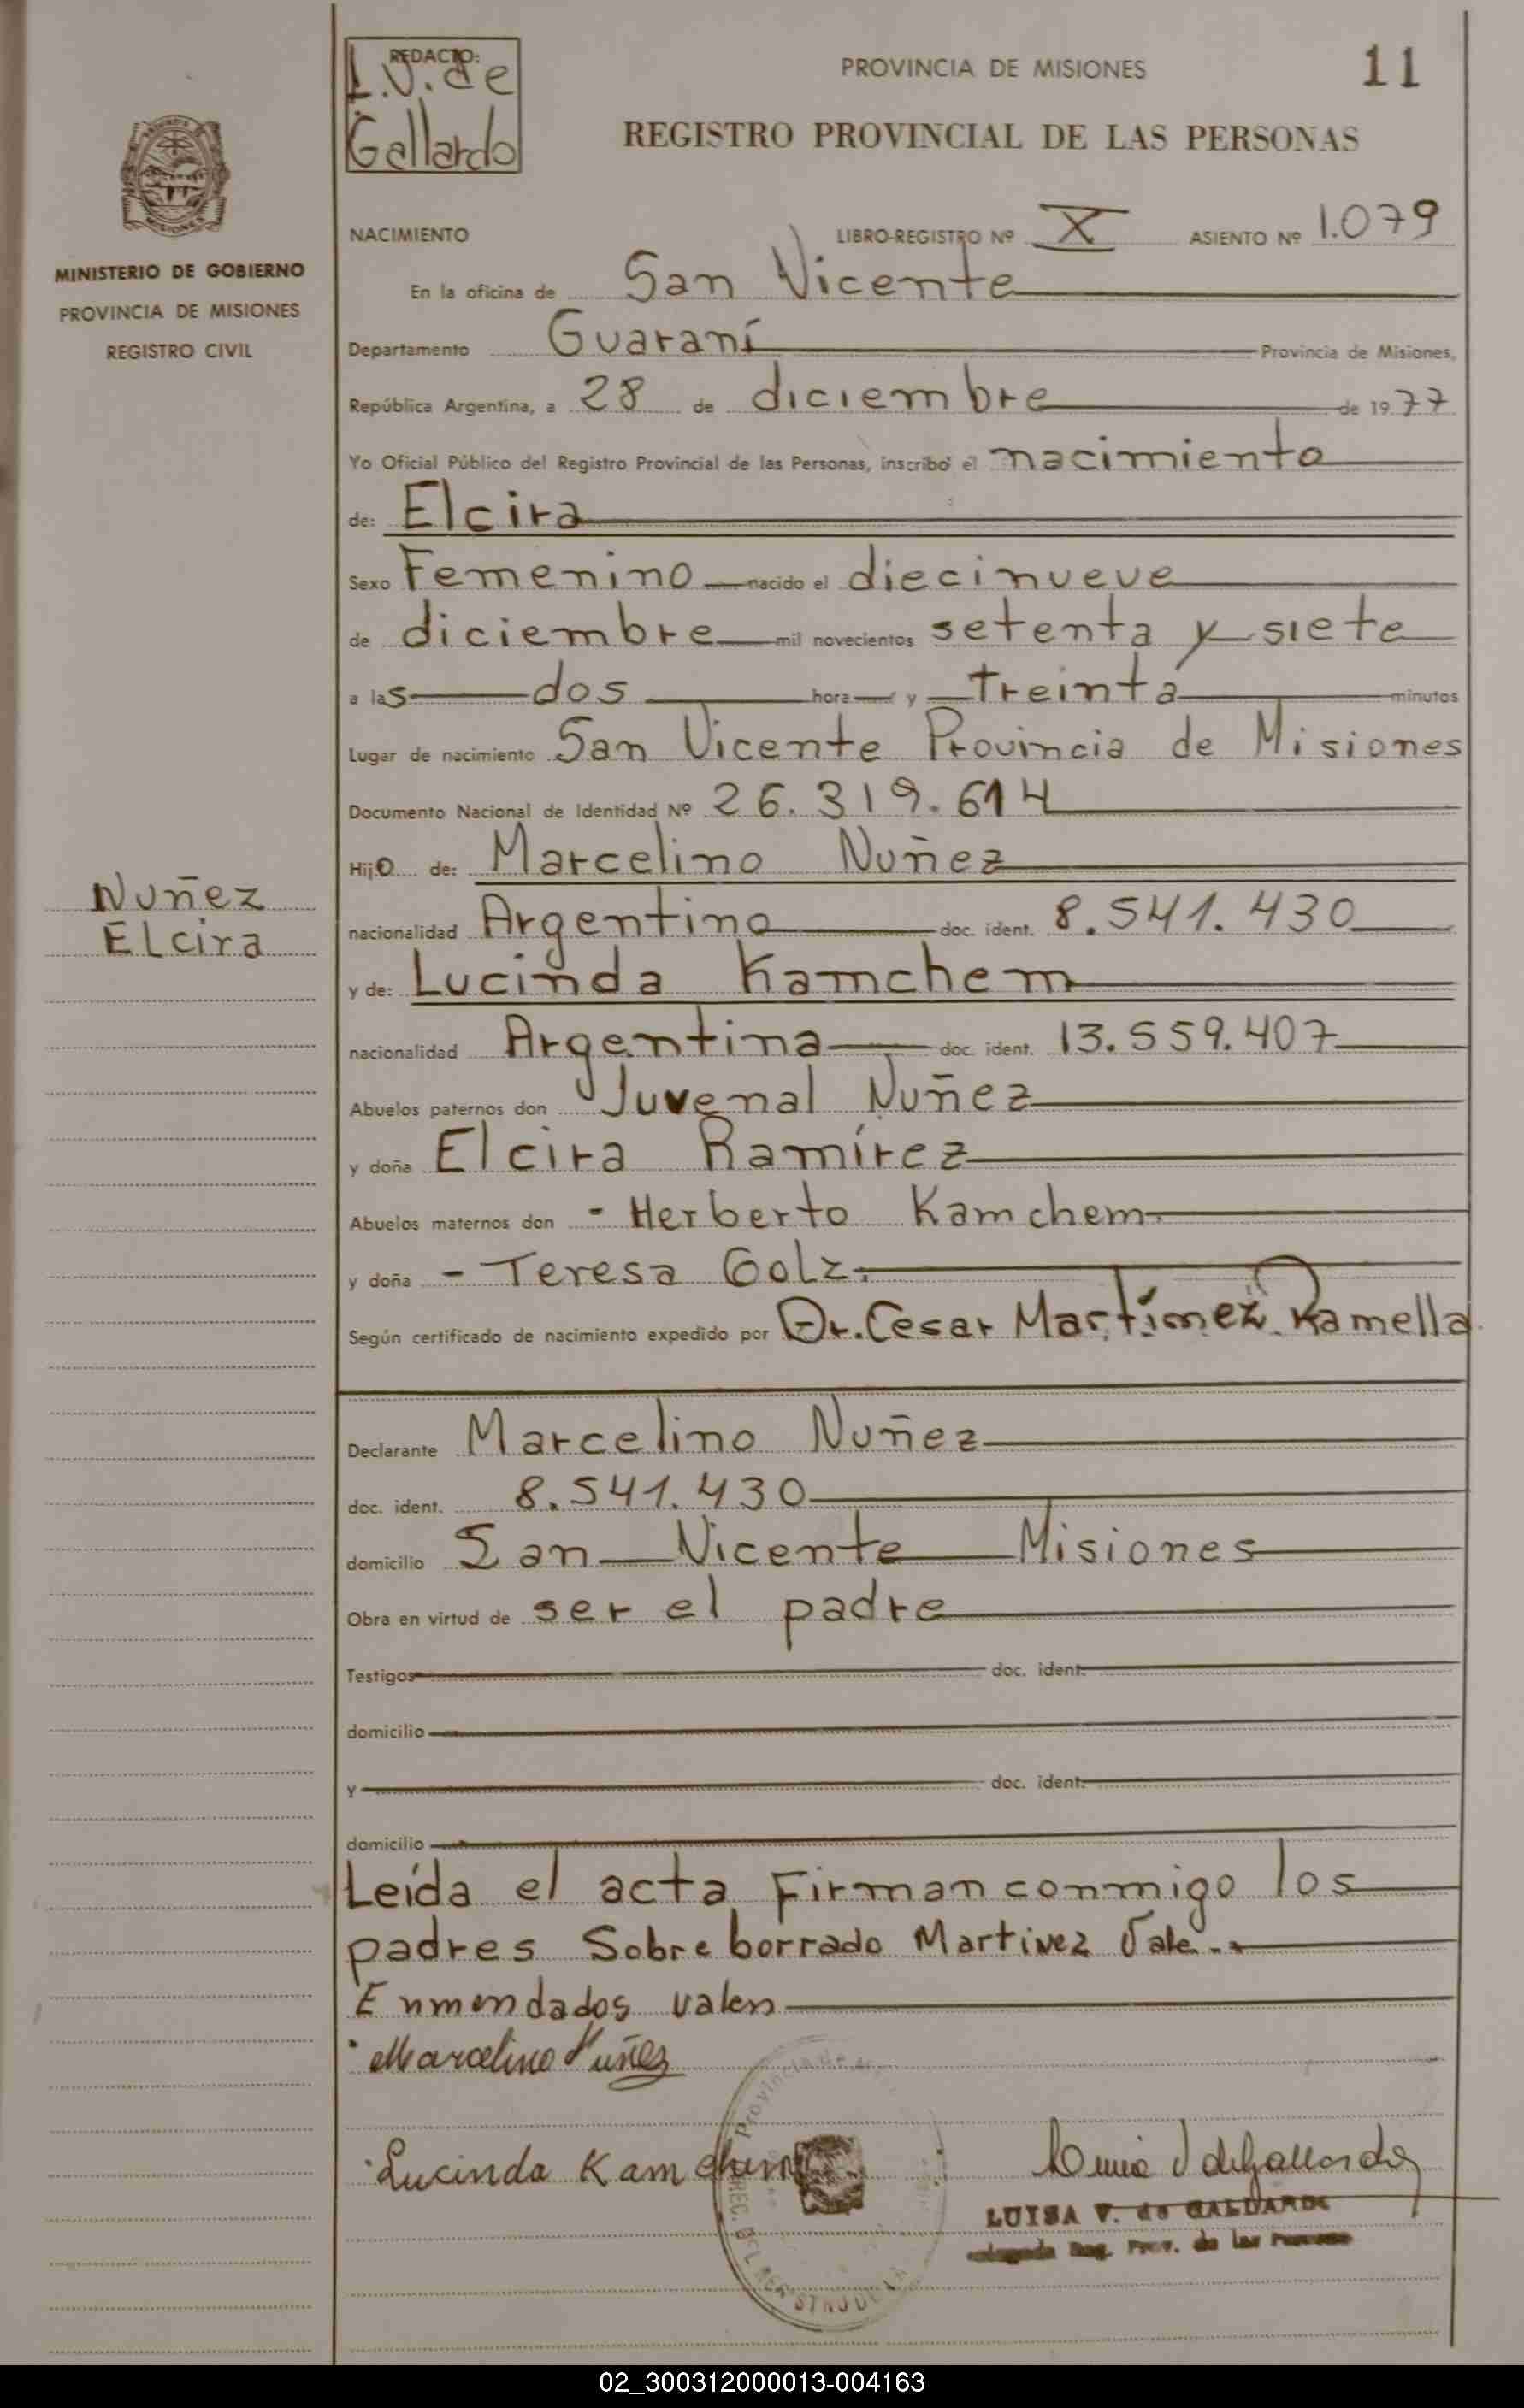 REDACTO:
L.V. de
Gallardo
PROVINCIA DE MISIONES
11
REGISTRO PROVINCIAL DE LAS PERSONAS
MISIONES
MINISTERIO DE GOBIERNO
PROVINCIA DE MISIONES
REGISTRO CIVIL
NACIMIENTO LIBRO-REGISTRO Nº X ASIENTO Nº 1.079
En la oficina de San Vicente
Departamento Guaraní Provincia de Misiones,
República Argentina, a 28 de diciembre de 1977
Yo Oficial Público del Registro Provincial de las Personas, inscribo el nacimiento
de: Elcira
Sexo Femenino nacido el diecinueve
de diciembre mil novecientos setenta y siete
a las dos hora y treinta minutos
Lugar de nacimiento San Vicente Provincia de Misiones
Documento Nacional de Identidad Nº 26.319.614
Hijo de: Marcelino Nuñez
Nuñez
Elcira
nacionalidad Argentino doc. ident. 8.541.430
y de: Lucinda Kamchem
nacionalidad Argentina doc. ident. 13.559.407
Abuelos paternos don Juvenal Nuñez
y doña Elcira Ramírez
Abuelos maternos don - Herberto Kamchem
y doña - Teresa Golz.
Según certificado de nacimiento expedido por Dr. Cesar Martínez Ramella
Declarante Marcelino Nuñez
doc. ident. 8.541.430
domicilio San Vicente Misiones
Obra en virtud de ser el padre
Testigos doc. ident.
domicilio
y doc. ident.
domicilio
Leída el acta Firman conmigo los
padres Sobre borrado Martinez Vale..
Enmendados valen
Marcelino Nuñez
Lucinda Kamchem
LUISA V. de GALLARDO
Reg. Prov. de las Personas
02_300312000013-004163